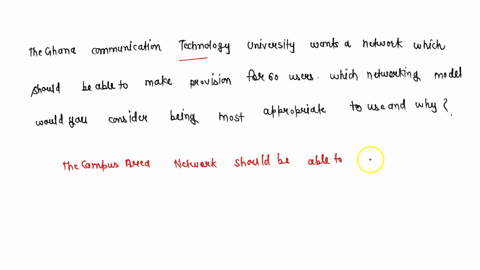 The Ghana communication Technology University wants a network which
should be able to make provision for 60 users. which networking model
would you consider being most appropriate to use and why?
The Campus Area Network should be able to